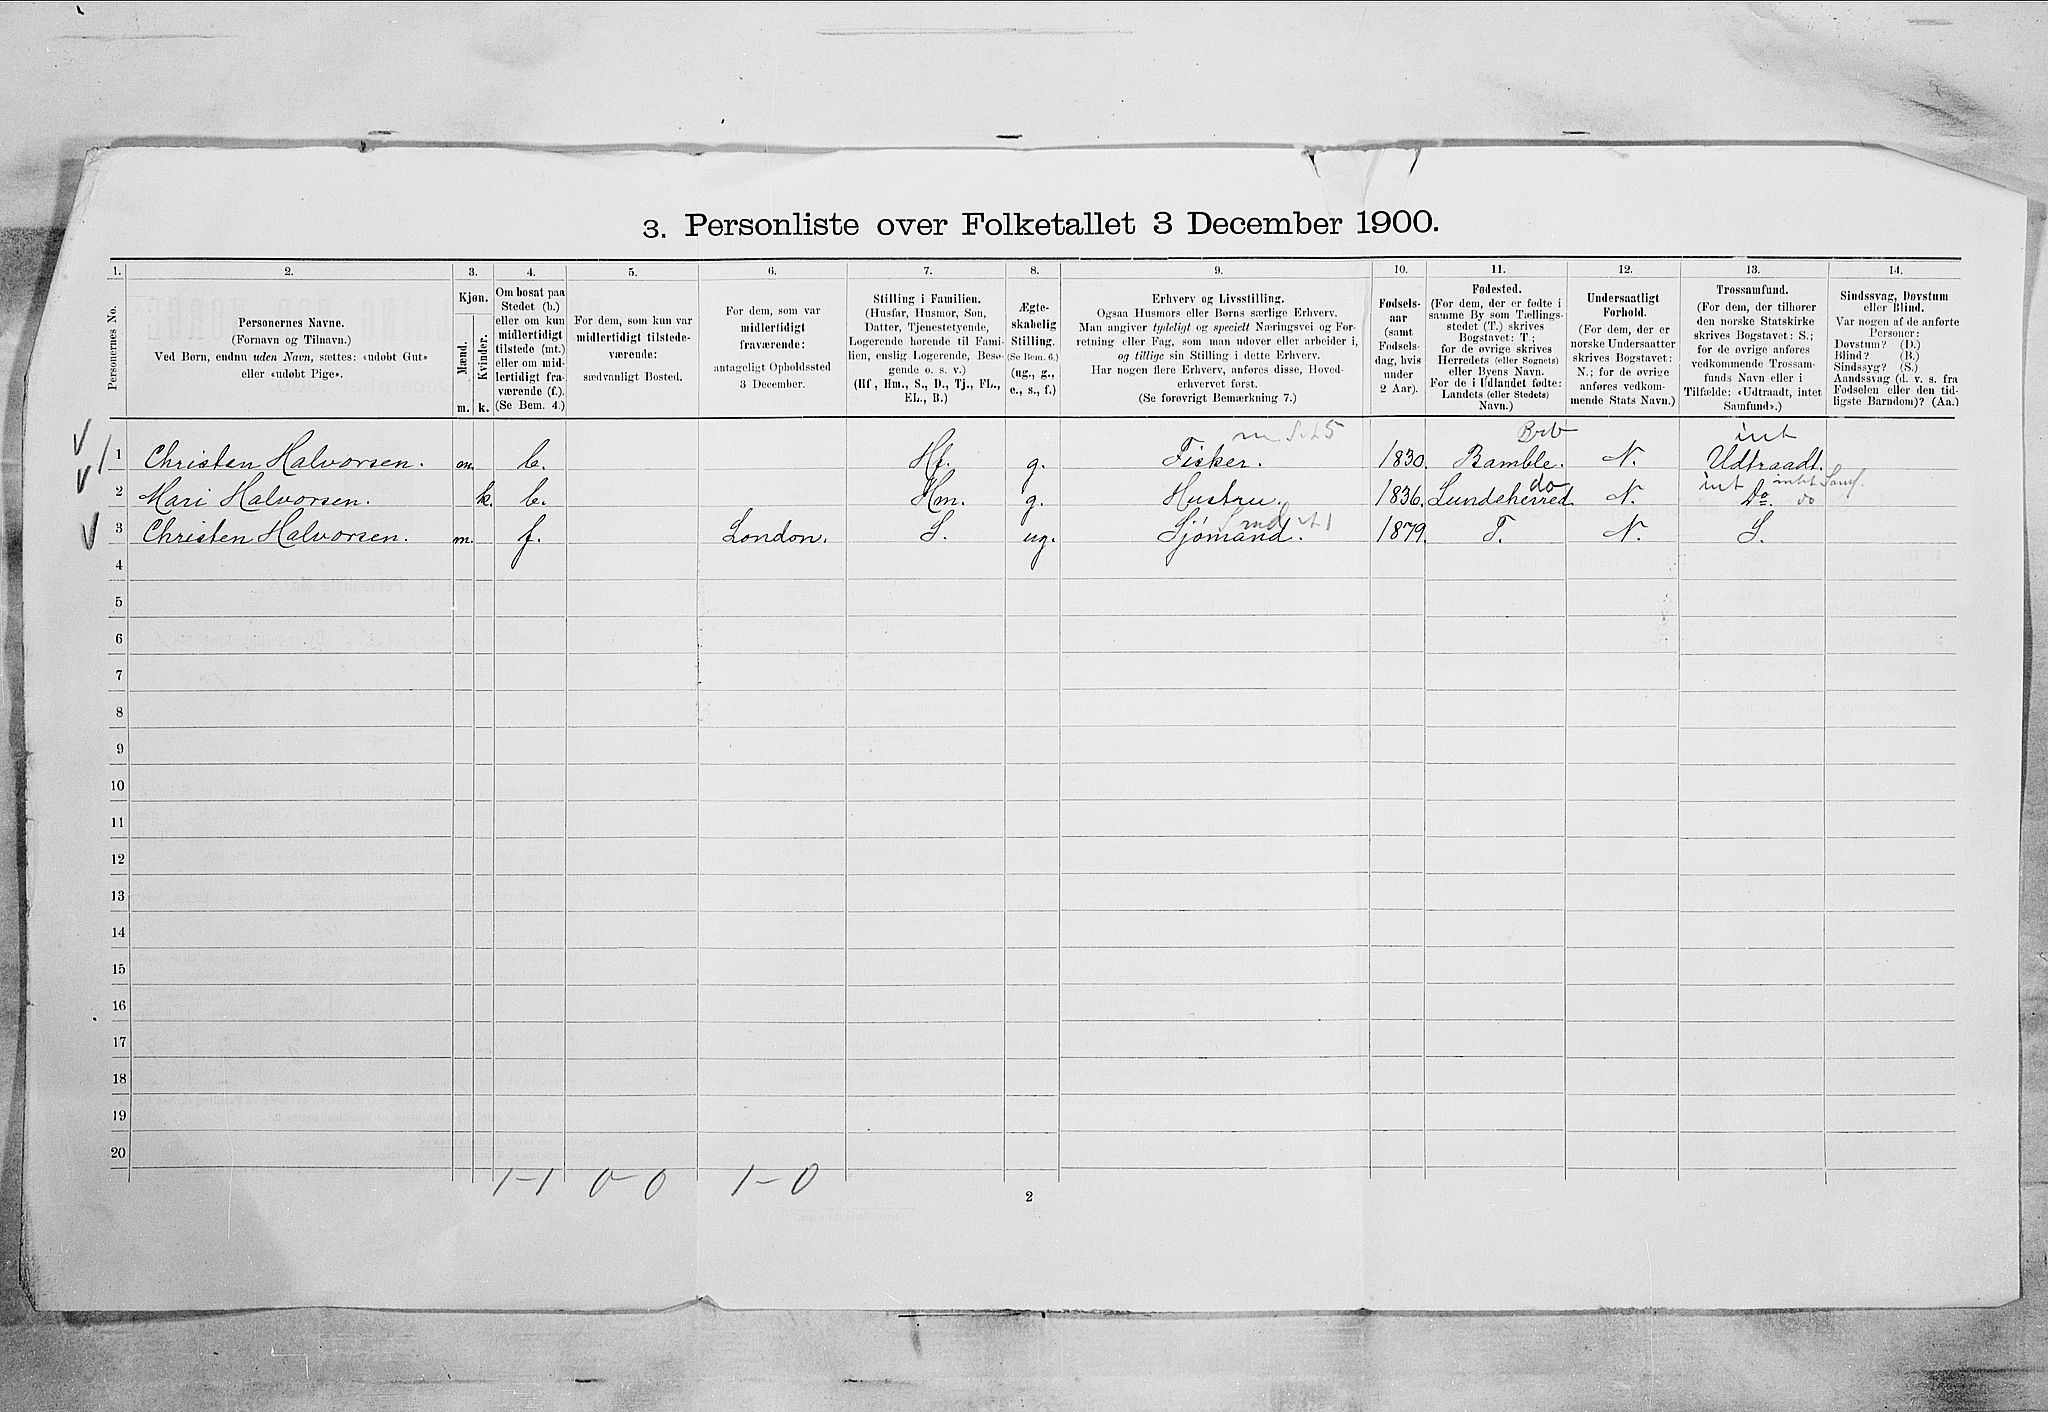 3. Personliste over Folketallet 3 December 1900.
1. 2. 3. 4. 5. 6. 7. 8. 9. 10. 11. 12. 13. 14.
Personernes No.
Personernes Navne.
(Fornavn og Tilnavn.)
Ved Børn, endnu uden Navn, sættes: «udøbt Gut»
eller «udøbt Pige».
Kjøn.
Mænd.
Kvinder.
m. k.
Om bosat paa
Stedet (b.)
eller om kun
midlertidigt
tilstede (mt.)
eller om mid-
lertidigt fra-
værende (f.).
(Se Bem. 4.)
For dem, som kun var
midlertidigt tilstede-
værende:
sædvanligt Bosted.
For dem, som var
midlertidigt
fraværende:
antageligt Opholdssted
3 December.
Stilling i Familien.
(Husfar, Husmor, Søn,
Datter, Tjenestetyende,
Logerende hørende til Fami-
lien, enslig Logerende, Besø-
gende o. s. v.)
(Hf., Hm., S., D., Tj., FL.,
EL., B.)
Ægte-
skabelig
Stilling.
(Se Bem. 6.)
(ug., g.,
e., s., f.)
Erhverv og Livsstilling.
Ogsaa Husmors eller Børns særlige Erhverv.
Man angiver tydeligt og specielt Næringsvei og For-
retning eller Fag, som man udover eller arbeider i,
og tillige sin Stilling i dette Erhverv.
Har nogen flere Erhverv, anføres disse, Hoved-
erhvervet først.
(Se forøvrigt Bemærkning 7.)
Fødsels-
aar
(samt
Fødsels-
dag, hvis
under
2 Aar).
Fødested.
(For dem, der er fødte i
samme By som Tællings-
stedet (T.) skrives
Bogstavet: T.;
for de øvrige skrives
Herredets (eller Sognets)
eller Byens Navn.
For de i Udlandet fødte:
Landets (eller Stedets)
Navn.)
Undersaatligt
Forhold.
(For dem, der er
norske Undersaatter
skrives Bogstavet:
N.; for de øvrige
anføres vedkom-
mende Stats Navn.)
Trossamfund.
(For dem, der tilhører
den norske Statskirke
skrives Bogstavet: S.;
for de øvrige anføres
vedkommende Trossam-
funds Navn eller i
Tilfælde: «Udtraadt, intet
Samfund».)
Sindssvag, Døvstum
eller Blind.
Var nogen af de anførte
Personer:
Døvstum? (D.)
Blind? (B.)
Sindssyg? (S.)
Aandssvag (d. v. s. fra
Fødselen eller den tid-
ligste Barndom)? (Aa.)
int
1 Christen Halvorsen. m. b. Hf. g. Fisker. 1830. Bamble. N. Udtraadt.
int intet Samf.
2 Mari Halvorsen. k. b. Hm. g. Hustru. 1836. Lundeherred do N. Do. do
3 Christen Halvorsen. m. f. London. S. ug. Sjømand. 1879. T. N. S.
4
5
6
7
8
9
10
11
12
13
14
15
16
17
18
19
20
1-1 0-0 1-0
2